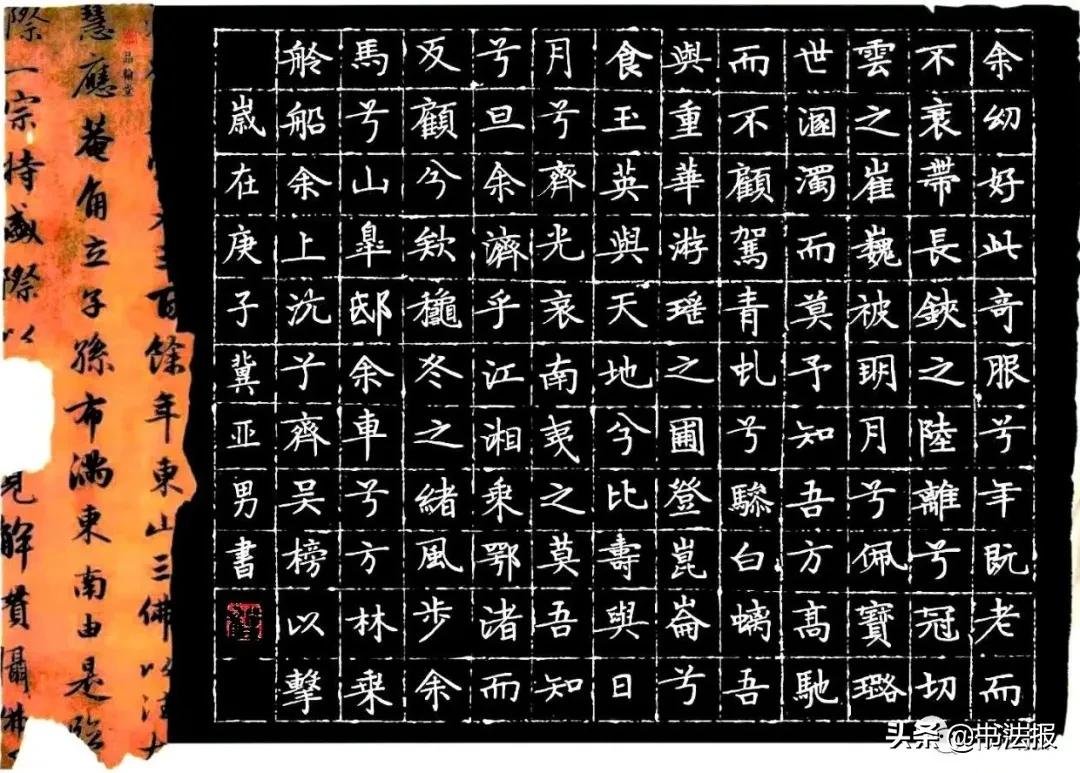 余幼好此奇服兮年既老而
不衰帶長鋏之陸離兮冠切
雲之崔巍被明月兮佩寶璐
世溷濁而莫予知吾方高馳
而不顧駕青虬兮驂白螭吾
與重華游瑤之圃登崑崙兮
食玉英與天地兮比壽與日
月兮齊光哀南夷之莫吾知
兮旦余濟乎江湘乘鄂渚而
反顧兮欸龝冬之緒風步余
馬兮山皋邸余車兮方林乘
舲船余上沅兮齊吳榜以擊
歲在庚子冀亚男書
百餘年東山三佛以法
慧應菴角立子孫布滿東南由是臨
際一宗特盛際以
見解貫攝佛
头条@书法报